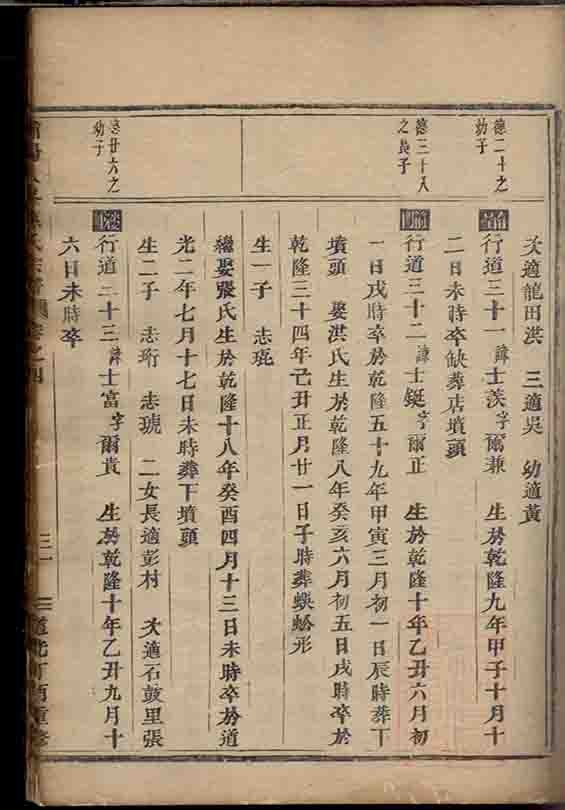 次適龍田洪　三適吳　幼適黃
德二十之
幼子
行道三十一諱士羨字爾兼　生於乾隆九年甲子十月十
二日未時卒缺葬店墳頭
德三十八
之長子
行道三十二諱士鋌字爾正　生於乾隆十年乙丑六月初
一日戌時卒於乾隆五十九年甲寅三月初一日辰時葬下
墳頭　娶洪氏生於乾隆八年癸亥六月初五日戌時卒於
乾隆三十四年己丑正月廿一日子時葬蜈蚣形
生一子　志琥
繼娶張氏生於乾隆十八年癸酉四月十三日未時卒於道
光二年七月十七日未時葬下墳頭
生二子　志珩　志琥　二女長適彭村　次適石鼓里張
廿六之
幼子
行道三十三諱士富字爾貴　生於乾隆十年乙丑九月十
六日未時卒
卷之四　三一　道光丁酉重修